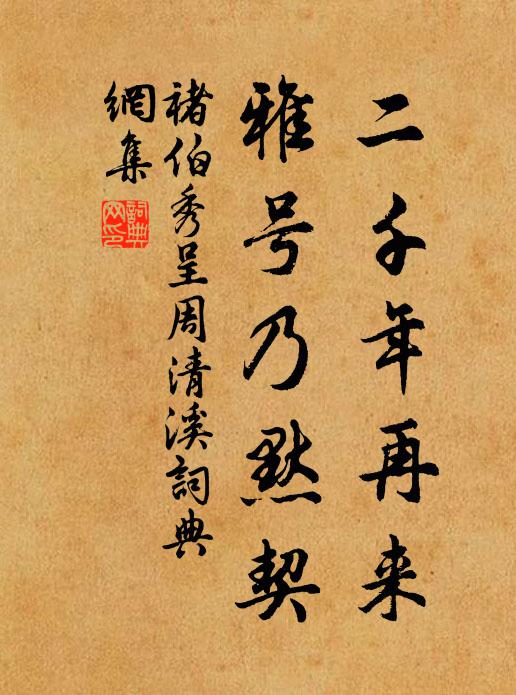 二千年再来
雅号乃黙契
褚伯秀呈周清溪詞典
網集
詞典
网印